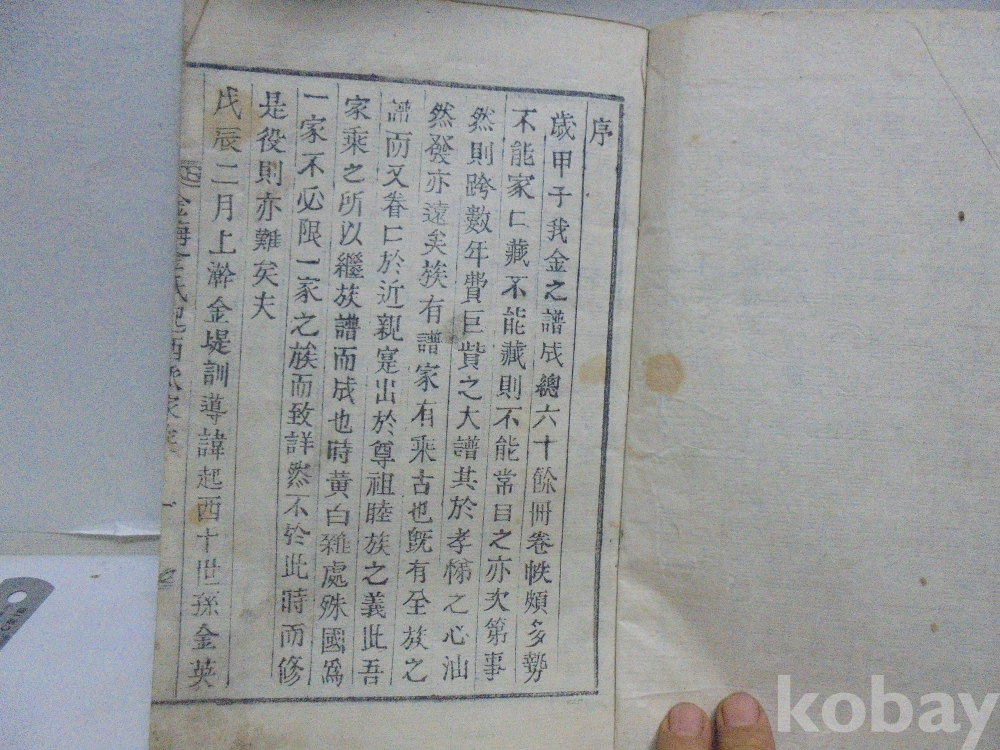 序
歲甲子我金之譜成總六十餘冊卷帙頗多勢
不能家口藏不能藏則不能常目之亦次第事
然則跨數年費巨貲之大譜其於孝悌之心油
然發亦遠矣族有譜家有乘古也旣有全族之
譜而又眷口於近親寔出於尊祖睦族之義此吾
家乘之所以繼族譜而成也時黃白雜處殊國爲
一家不必限一家之族而致詳然不於此時而修
是役則亦難矣夫
戊辰二月上澣金堤訓導諱起西十世孫金英
金海金氏起西派家乘
kobay